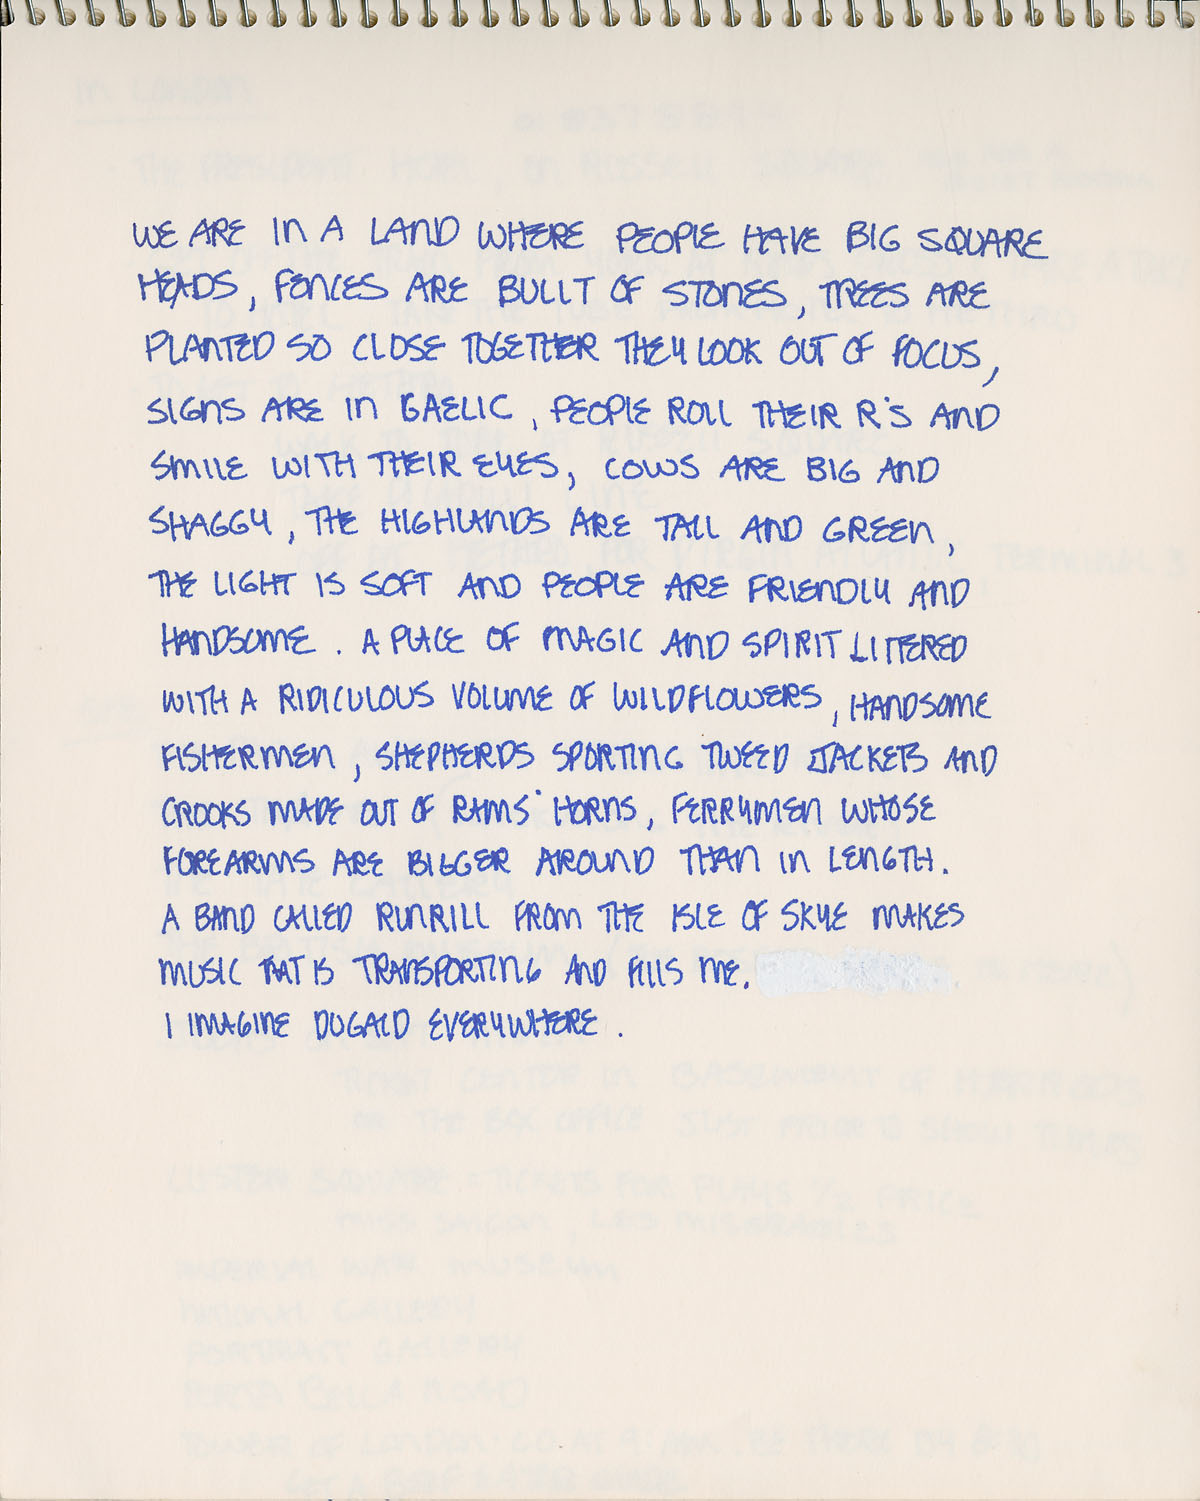 WE ARE IN A LAND WHERE PEOPLE HAVE BIG SQUARE
HEADS, FENCES ARE BUILT OF STONES, TREES ARE
PLANTED SO CLOSE TOGETHER THEY LOOK OUT OF FOCUS,
SIGNS ARE IN GAELIC, PEOPLE ROLL THEIR R'S AND
SMILE WITH THEIR EYES, COWS ARE BIG AND
SHAGGY, THE HIGHLANDS ARE TALL AND GREEN,
THE LIGHT IS SOFT AND PEOPLE ARE FRIENDLY AND
HANDSOME. A PLACE OF MAGIC AND SPIRIT LITTERED
WITH A RIDICULOUS VOLUME OF WILDFLOWERS, HANDSOME
FISHERMEN, SHEPHERDS SPORTING TWEED JACKETS AND
CROOKS MADE OUT OF RAMS' HORNS, FERRYMEN WHOSE
FOREARMS ARE BIGGER AROUND THAN IN LENGTH.
A BAND CALLED RUNRILL FROM THE ISLE OF SKYE MAKES
MUSIC THAT IS TRANSPORTING AND FILLS ME.
I IMAGINE DUGALD EVERYWHERE.